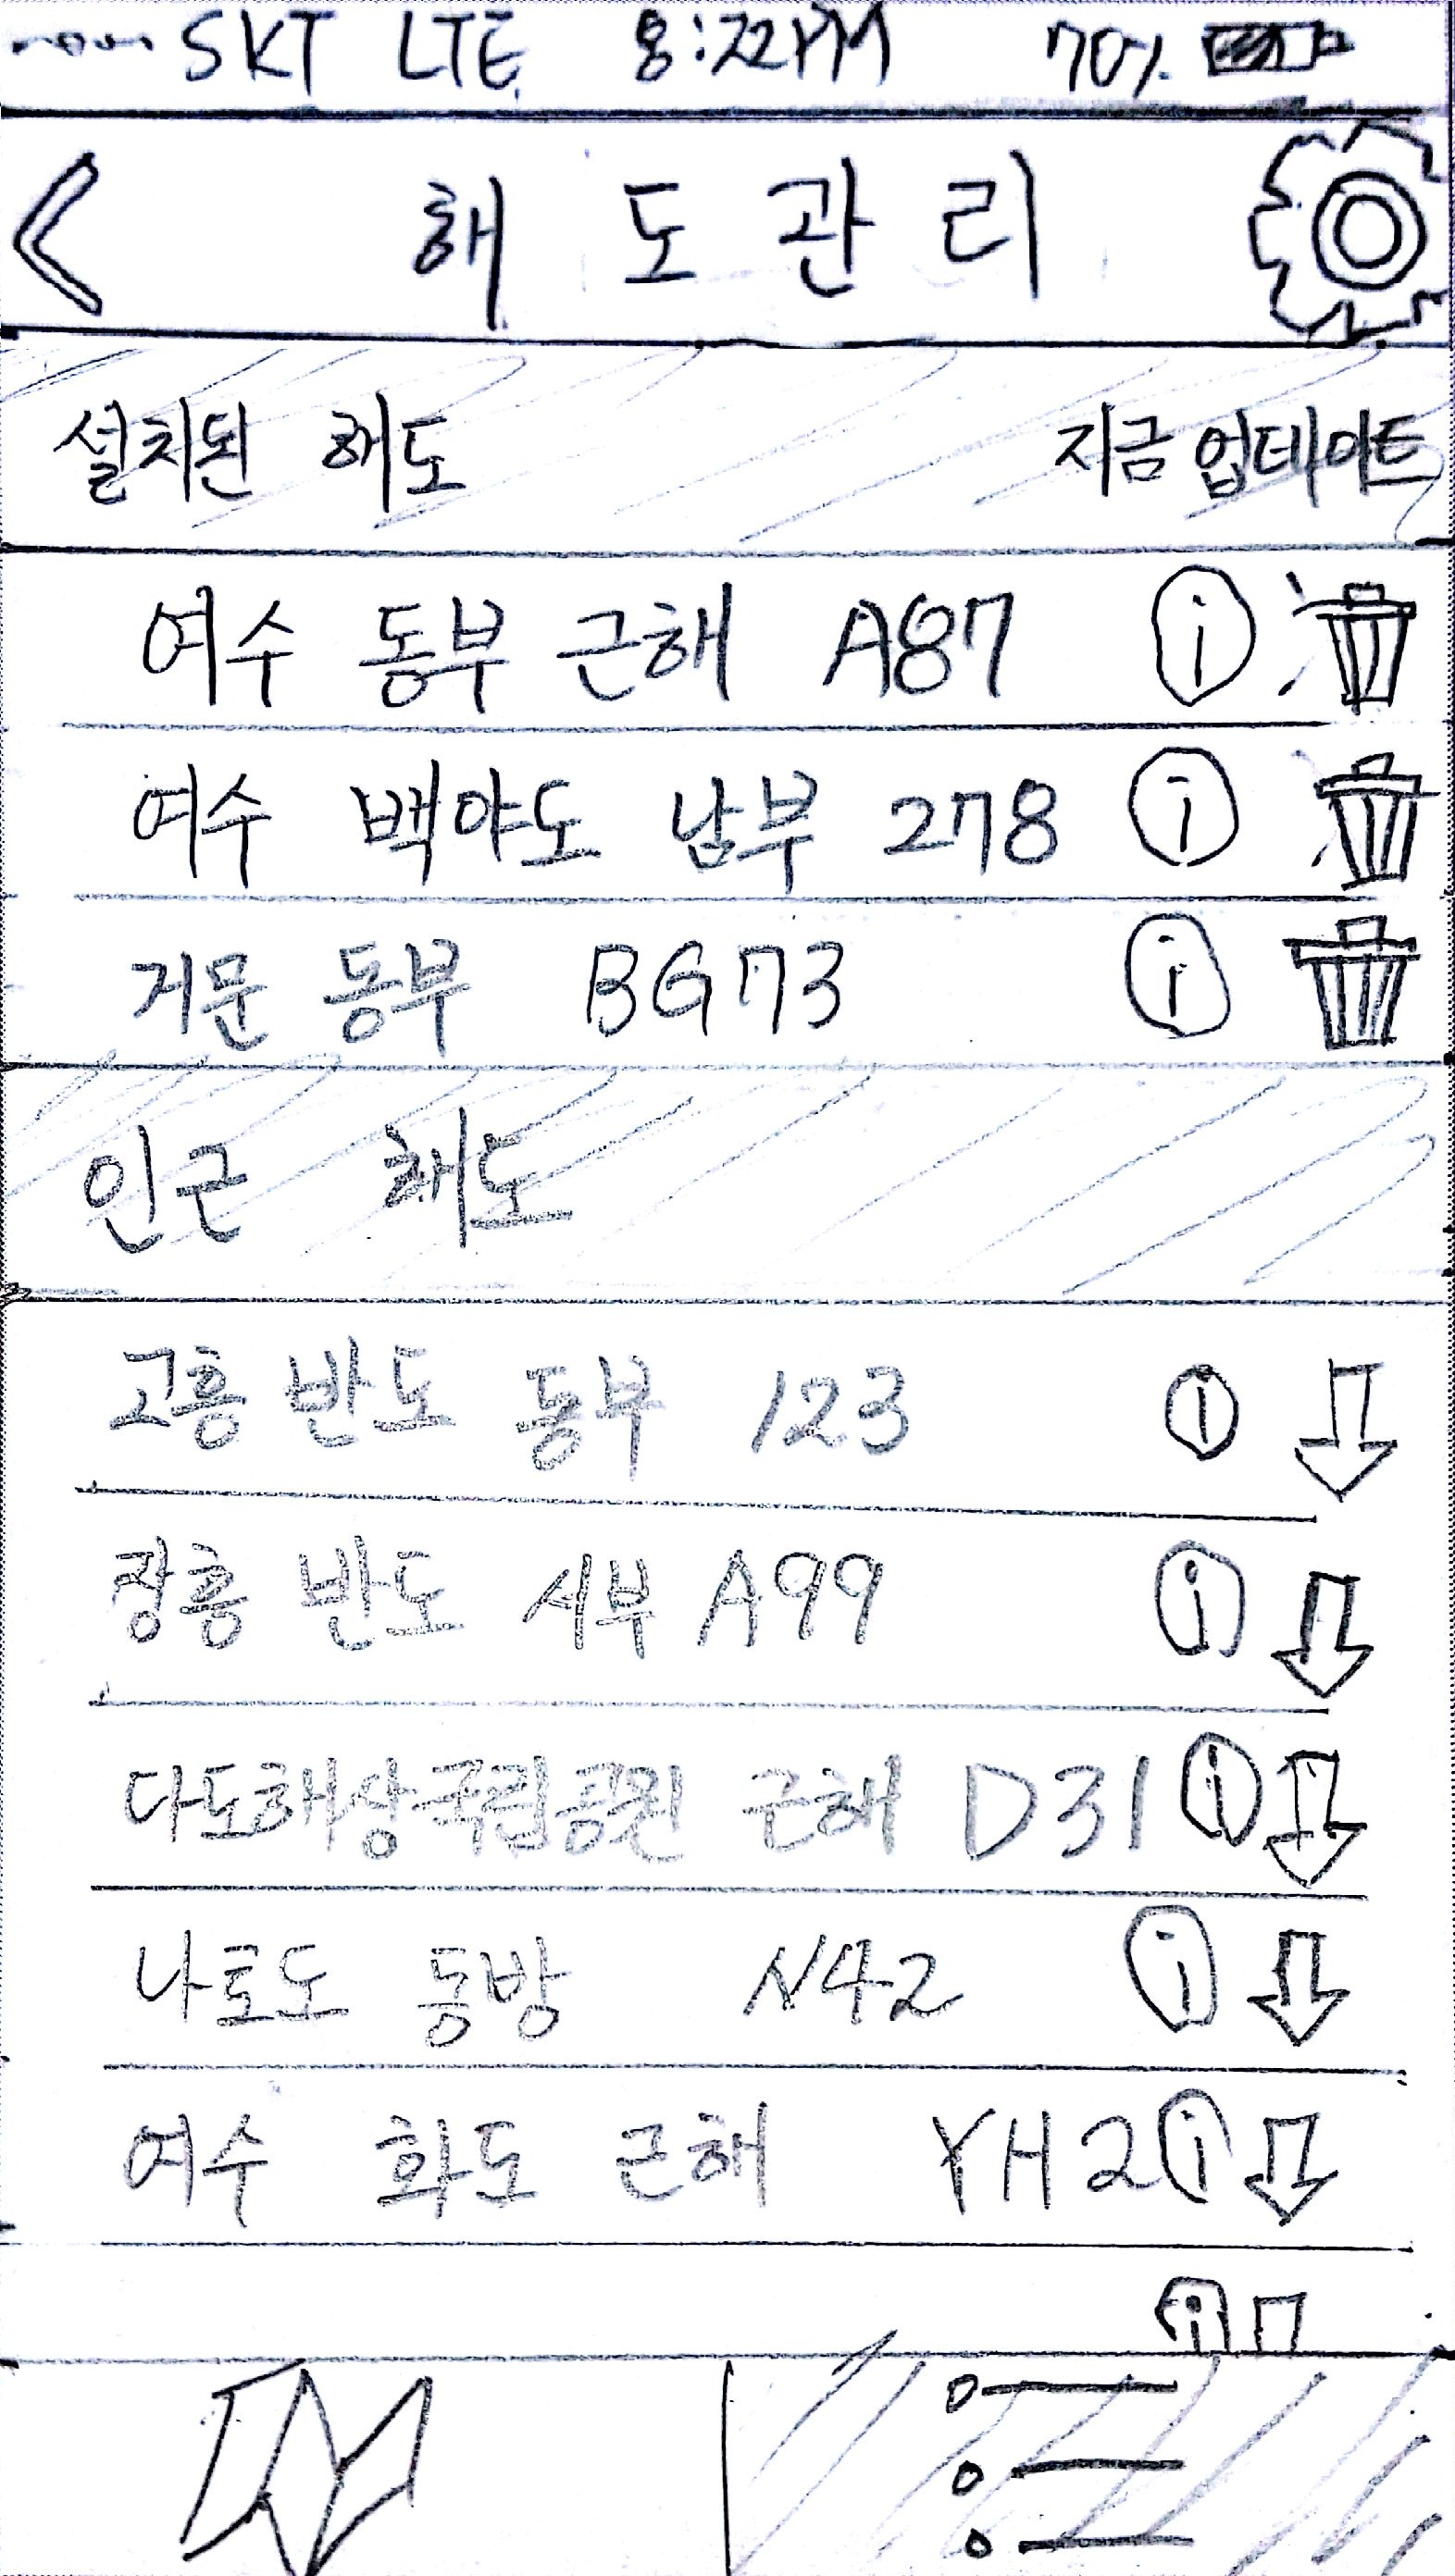 SKT LTE 8:22PM 70%
해도관리
설치된 해도 지금 업데이트
여수 동부 근해 A87
여수 백야도 남부 278
거문 동부 BG73
인근 해도
고흥 반도 동부 123
장흥 반도 서부 A99
다도해상국립공원 근해 D31
나로도 동방 N42
여수 화도 근해 YH2